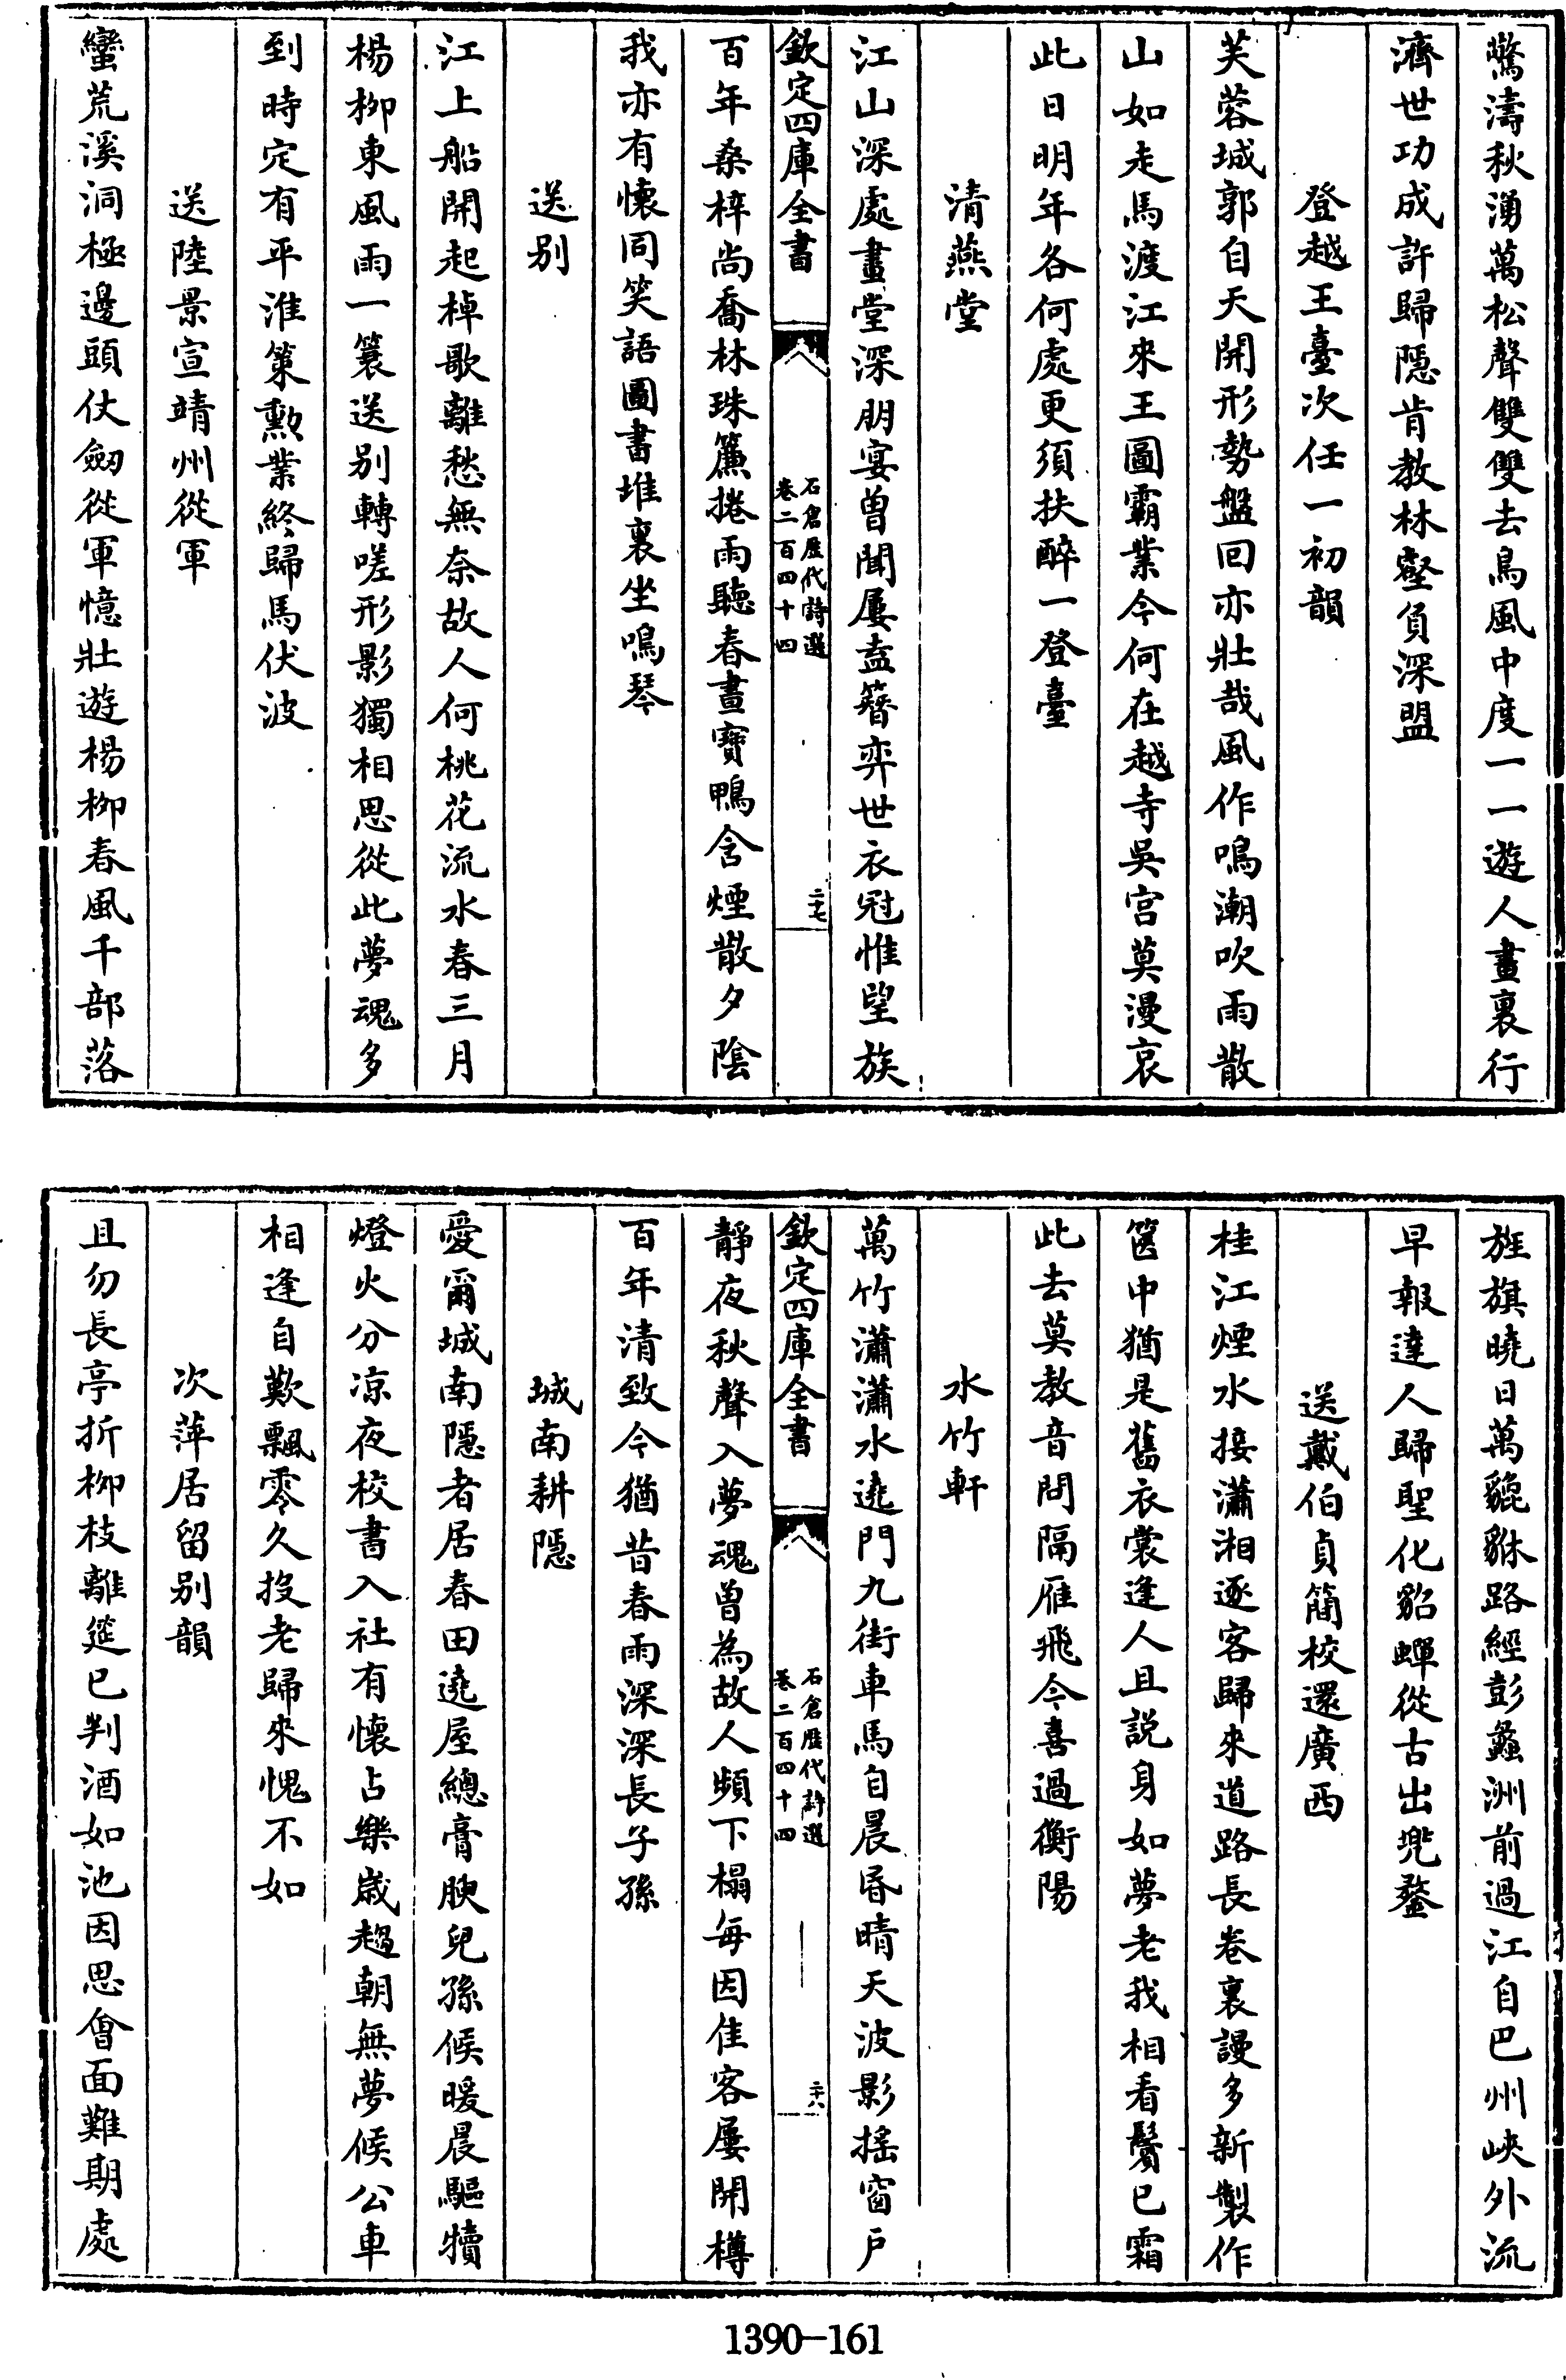 驚濤秋湧萬松聲雙雙去鳥風中度一一遊人畫裏行
濟世功成許歸隱肯教林壑負深盟
登越王臺次任一初韻
芙蓉城郭自天開形勢盤回亦壯哉風作鳴潮吹雨散
山如走馬渡江來王圖霸業今何在越寺吳宫莫漫哀
此日明年各何處更須扶醉一登臺
清燕堂
江山深處畫堂深朋宴曾聞屢盍簪弈世衣冠惟望族
欽定四庫全書
石倉歷代詩選
卷二百四十四
二十七
百年桑梓尚喬林珠簾捲雨聽春晝寶鴨含煙散夕陰
我亦有懷同笑語圖書堆裏坐鳴琴
送别
江上船開起棹歌離愁無奈故人何桃花流水春三月
楊柳東風雨一簑送别轉嗟形影獨相思從此夢魂多
到時定有平淮策勲業終歸馬伏波
送陸景宣靖州從軍
蠻荒溪洞極邊頭仗劒從軍憶壯遊楊柳春風千部落
旌旗曉日萬貔貅路經彭蠡洲前過江自巴州峽外流
早報達人歸聖化貂蟬從古出兜鍪
送戴伯貞簡校還廣西
桂江煙水接瀟湘逐客歸來道路長卷裏謾多新製作
篋中猶是舊衣裳逢人且説身如夢老我相看鬢已霜
此去莫教音問隔雁飛今喜過衡陽
水竹軒
萬竹瀟瀟水遶門九街車馬自晨昏晴天波影揺窗戶
欽定四庫全書
石倉歷代詩選
卷二百四十四
二十八
靜夜秋聲入夢魂曾為故人頻下榻每因佳客屢開樽
百年清致今猶昔春雨深深長子孫
城南耕隱
愛爾城南隱者居春田遶屋總膏腴兒孫候暖晨驅犢
燈火分凉夜校書入社有懷占樂歳趨朝無夢候公車
相逢自歎飄零久投老歸來愧不如
次萍居留别韻
且勿長亭折柳枝離筵已判酒如池因思會面難期處
1390—161